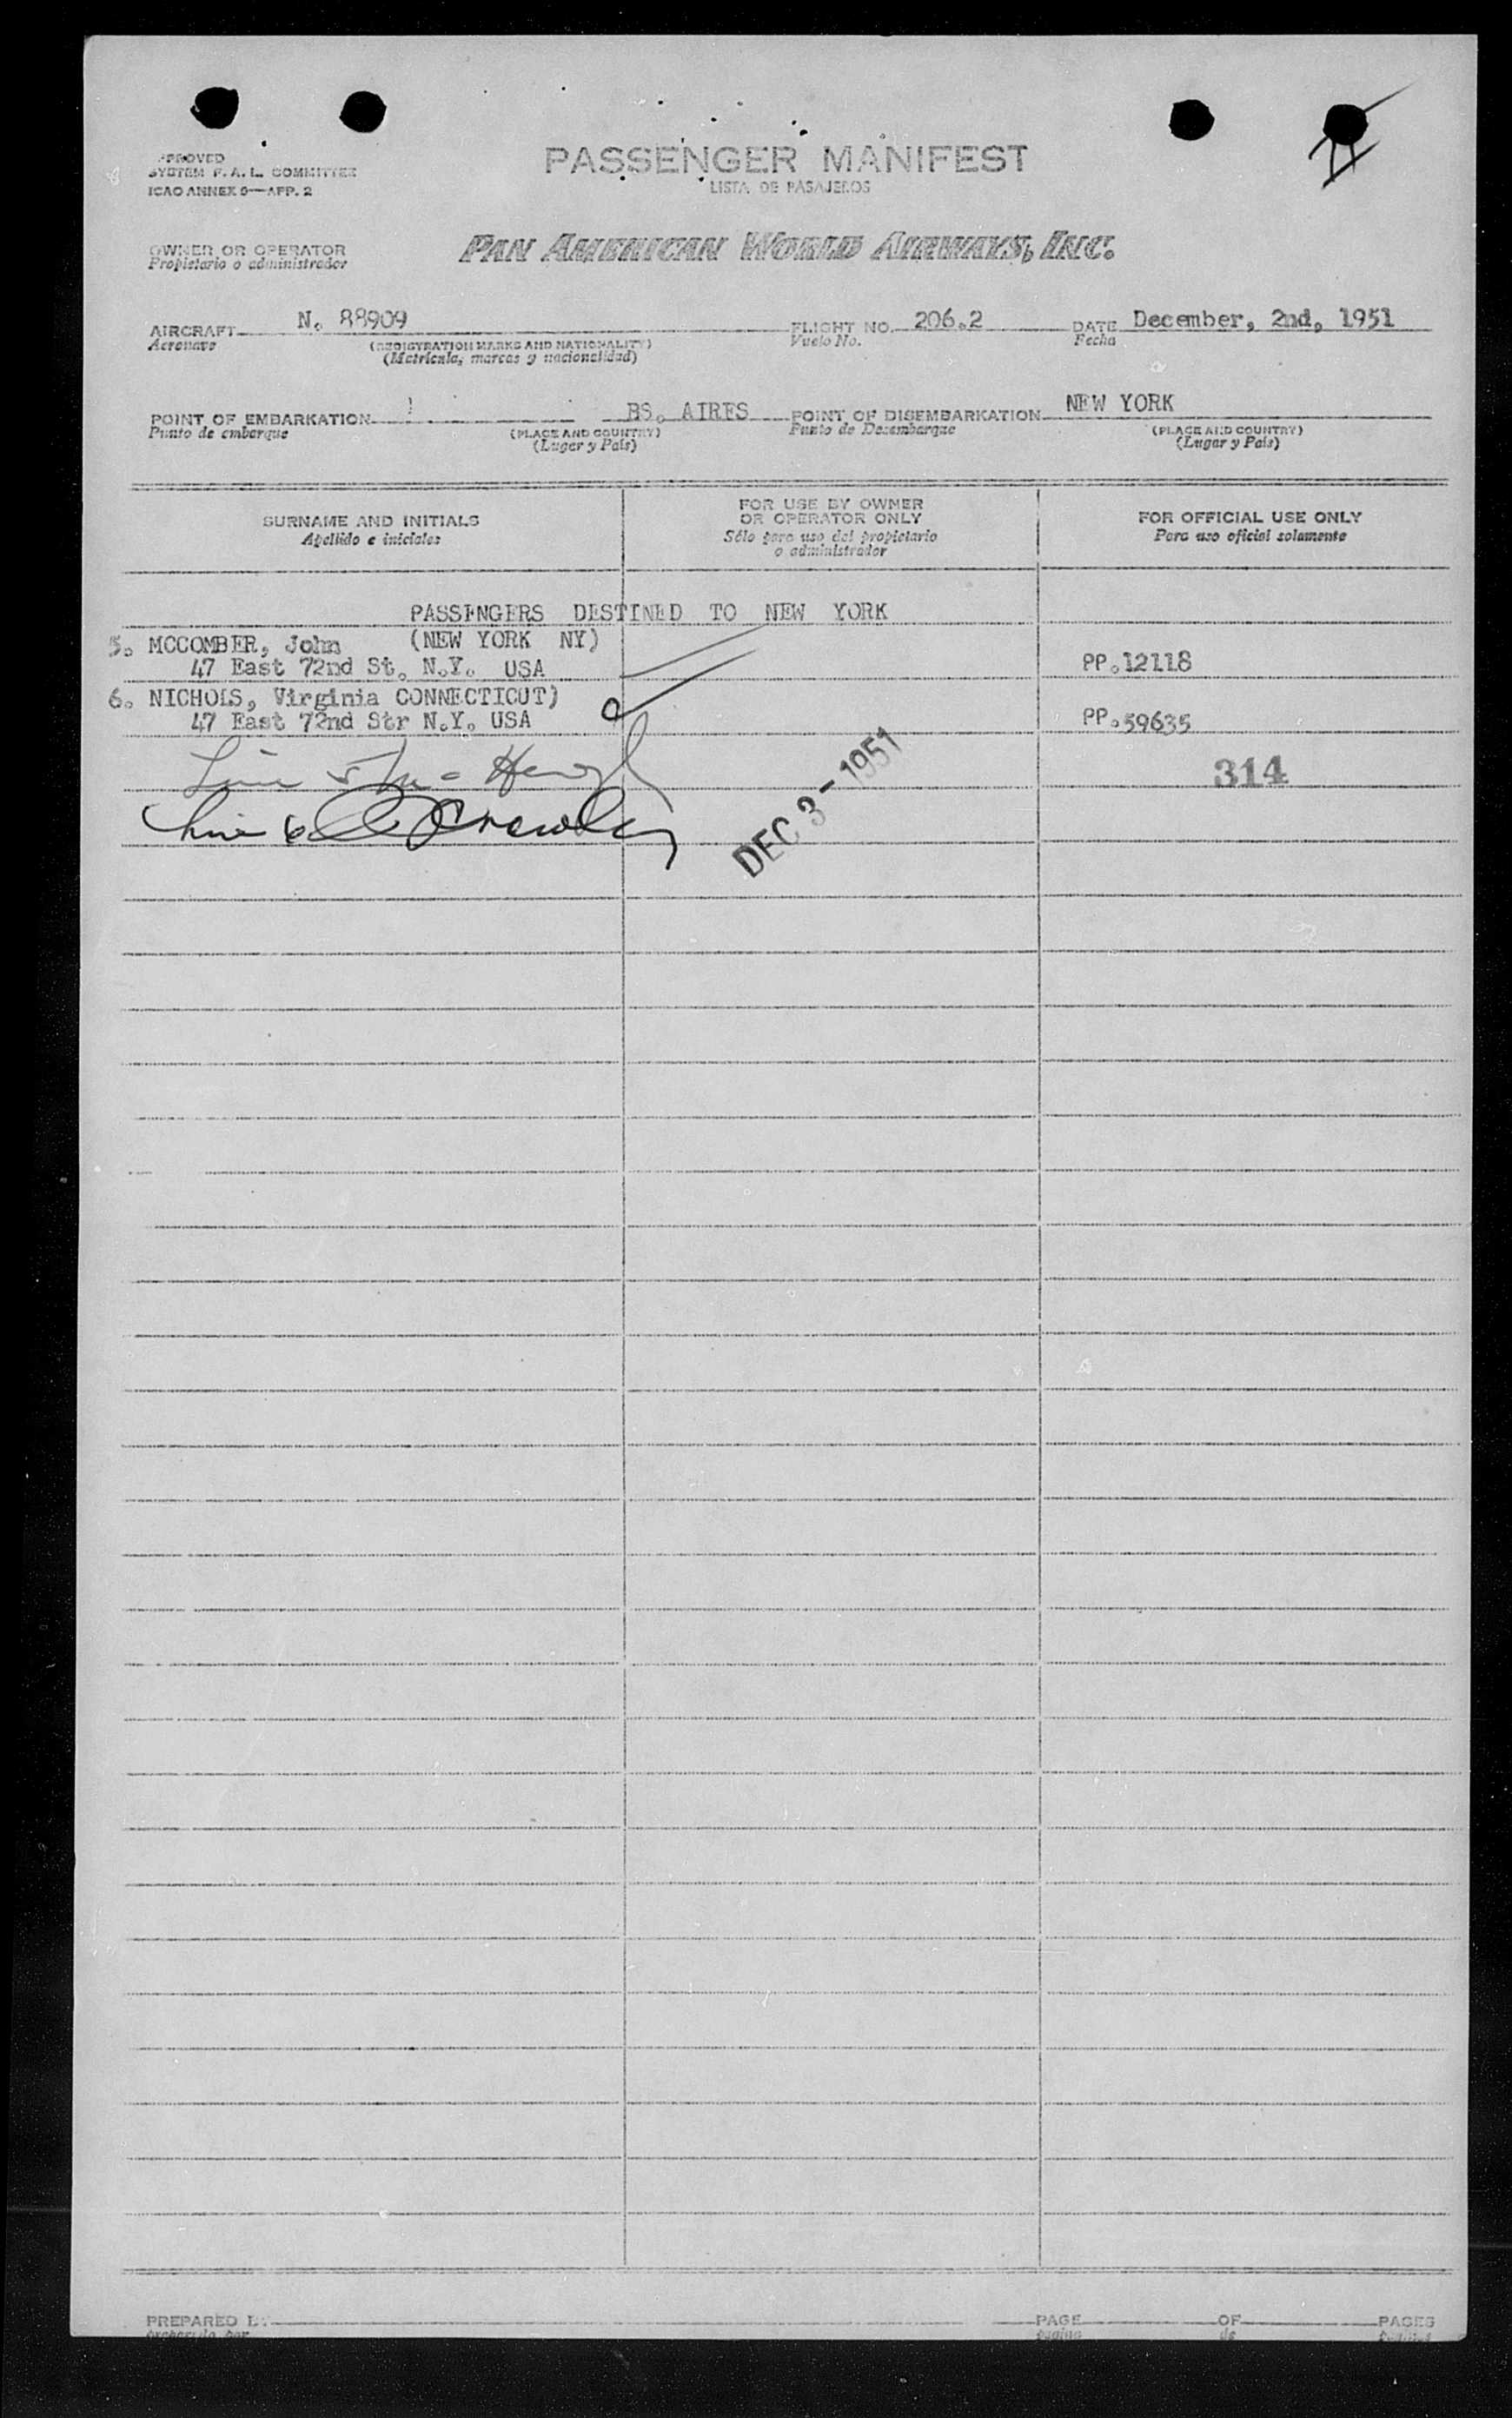 PASSENGER MANIFEST
LISTA DE PASAJEROS
SYSTEM F. A. L. COMMITTEE
ICAO ANNEX 9—APP. 2
OWNER OR OPERATOR
Propietario o administrador
PAN AMERICAN WORLD AIRWAYS, INC.
AIRCRAFT N. 88909 FLIGHT NO. 206.2 DATE December, 2nd, 1951
Aeronave (REGISTRATION MARKS AND NATIONALITY) Vuelo No. Fecha
(Matrícula, marcas y nacionalidad)
POINT OF EMBARKATION BS. AIRES POINT OF DISEMBARKATION NEW YORK
Punto de embarque (PLACE AND COUNTRY) Punto de Desembarque (PLACE AND COUNTRY)
(Lugar y País) (Lugar y País)
SURNAME AND INITIALS
Apellido e iniciales
FOR USE BY OWNER
OR OPERATOR ONLY
Sólo para uso del propietario
o administrador
FOR OFFICIAL USE ONLY
Para uso oficial solamente
PASSENGERS DESTINED TO NEW YORK
5. MCCOMBER, John (NEW YORK NY)
47 East 72nd St. N.Y. USA PP.12118
6. NICHOLS, Virginia CONNECTICUT)
47 East 72nd Str N.Y. USA PP.59635
Line 5
314
Line 6
DEC 3-1951
PREPARED PAGE OF PAGES